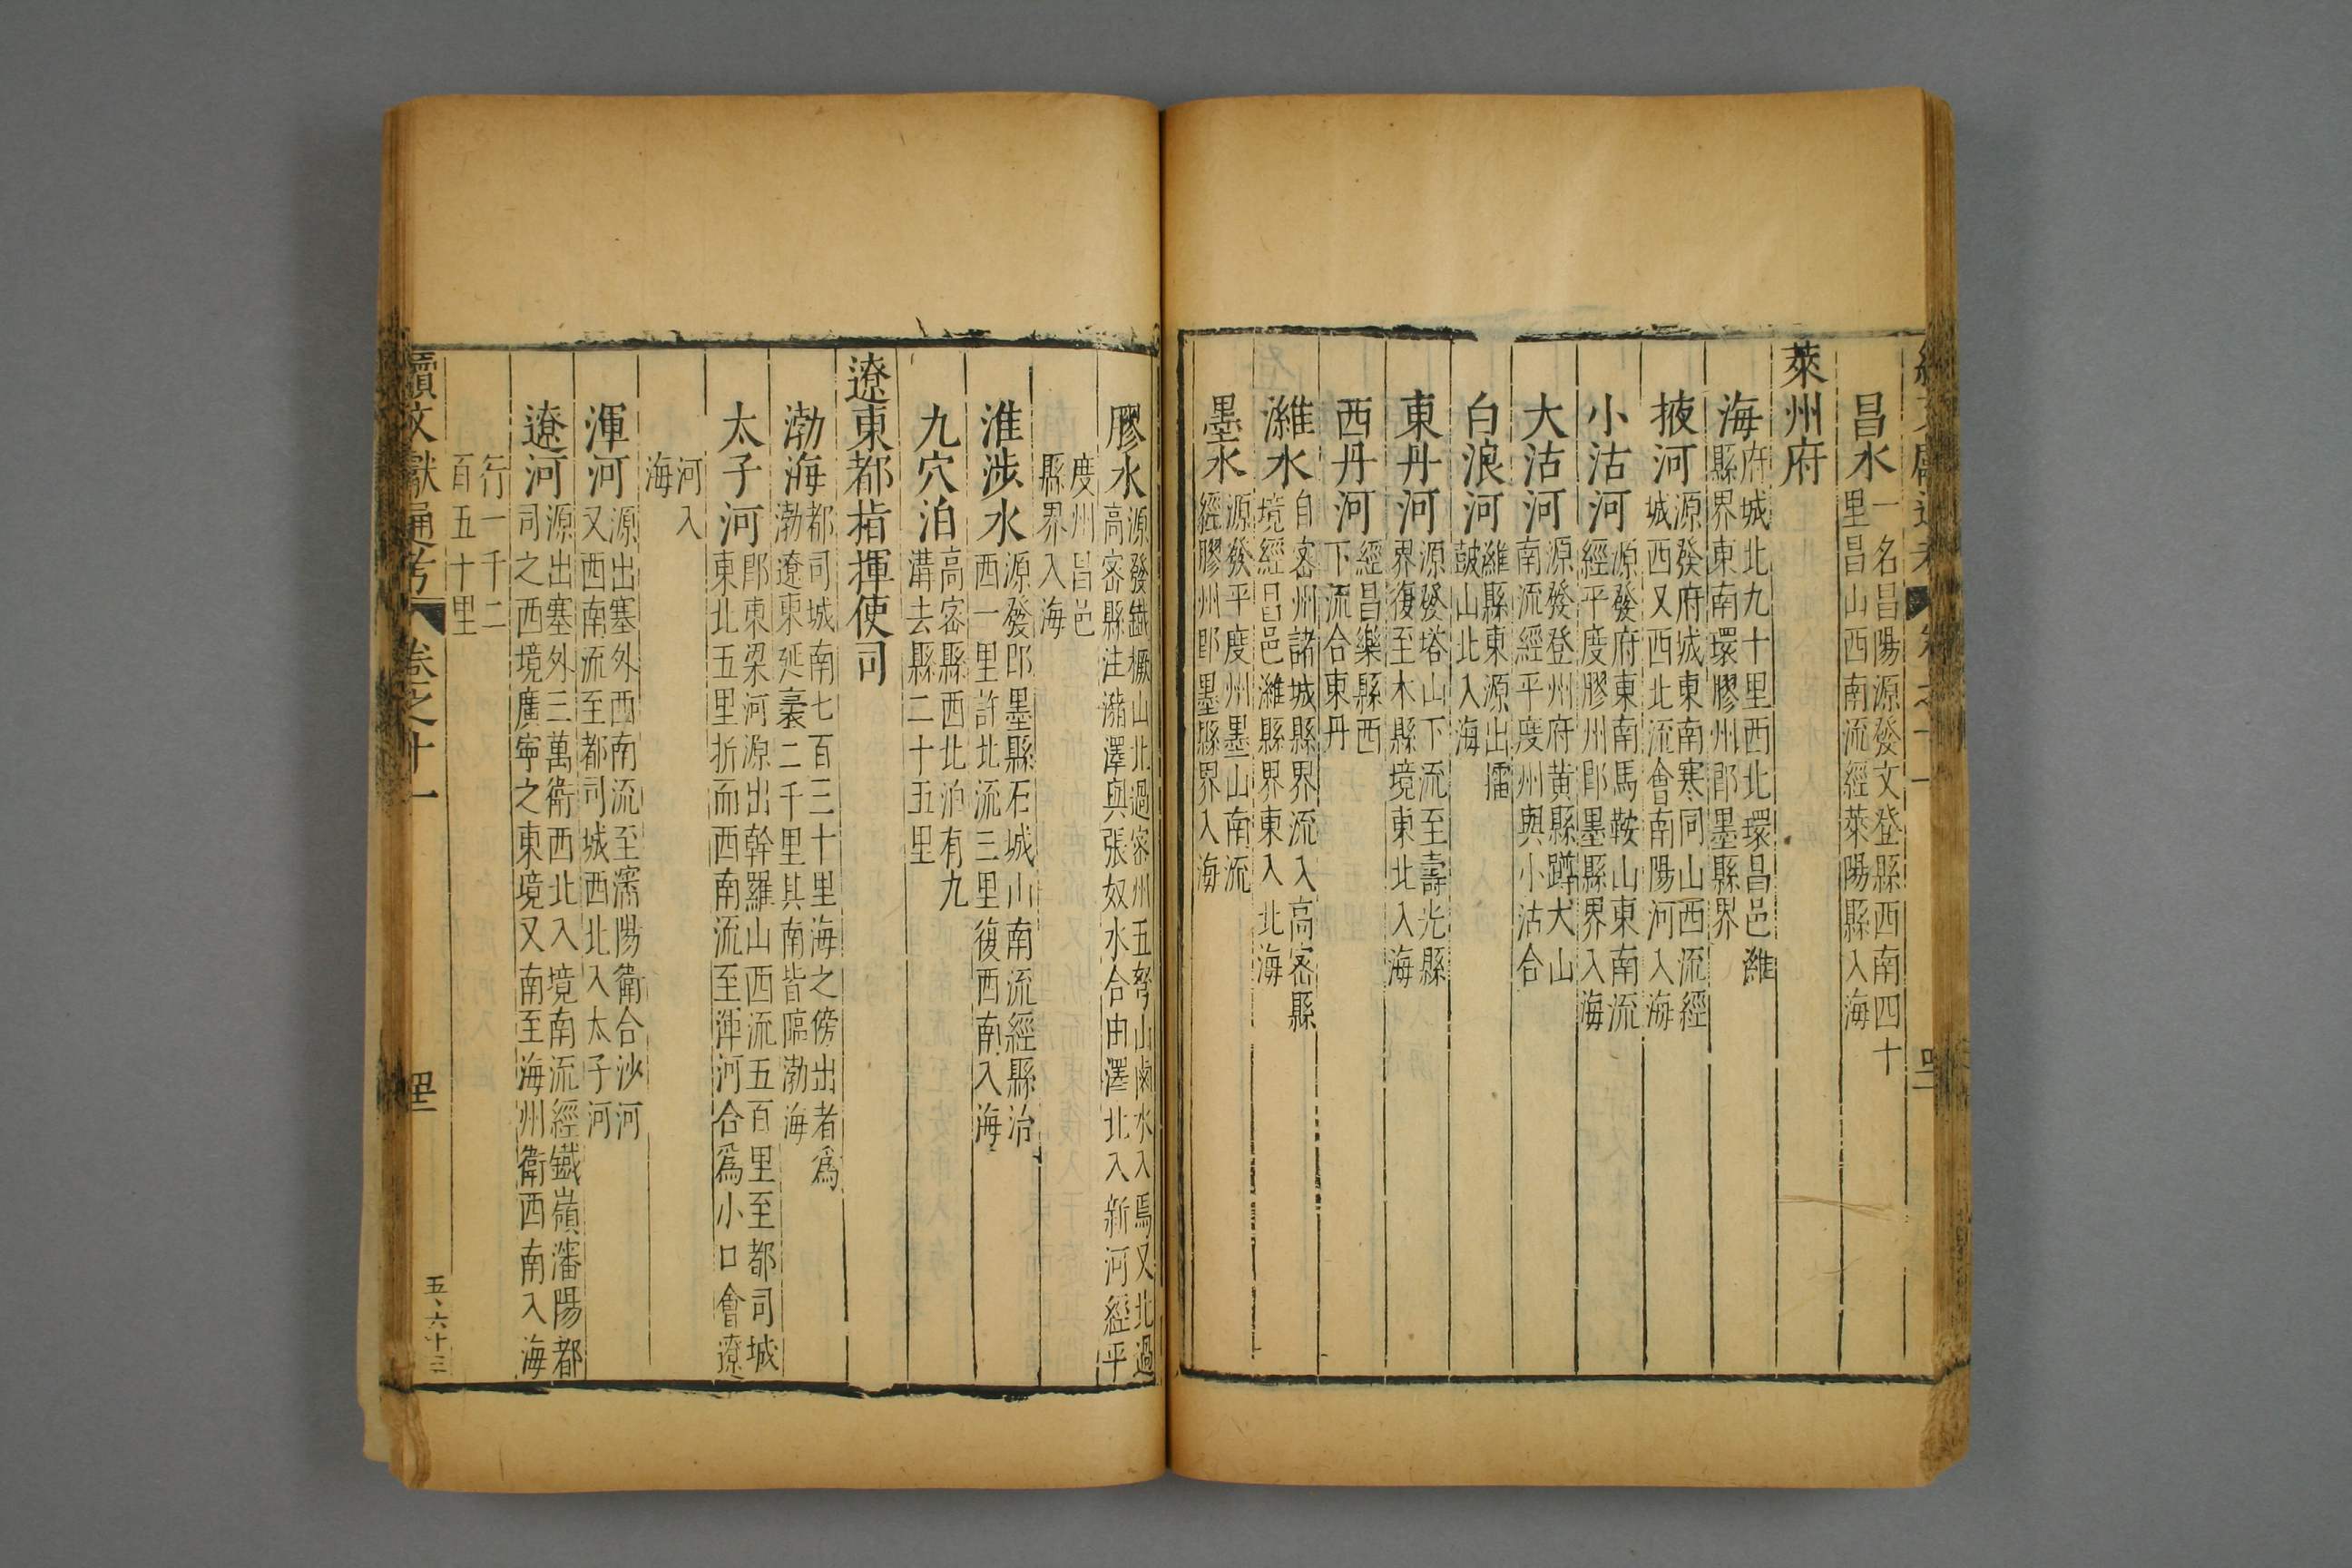 昌水一名昌陽源發文登縣西南四十
里昌山西南流經萊陽縣入海
萊州府
海府城北九十里西北環昌邑濰
縣界東南環膠州即墨縣界
掖河源發府城東南寒同山西流經
城西又西北流會南陽河入海
小沽河源發府東南馬鞍山東南流
經平度膠州即墨縣界入海
大沽河源發登州府黃縣蹲犬山
南流經平度州與小沽合
白浪河濰縣東源出擂
皷山北入海
東丹河源發塔山下流至壽光縣
界復至木縣境東北入海
西丹河經昌樂縣西
下流合東丹
濰水自密州諸城縣界流入高密縣
境經昌邑濰縣界東入北海
墨水源發平度州墨山南流
經膠州即墨縣界入海
膠水源發鐵橛山北過密州五弩山鹵水入焉又北過
高密縣注瀦澤與張奴水合由澤北入新河經平
度州昌邑
縣界入海
淮涉水源發即墨縣石城山南流經縣治
西一里許北流三里復西南入海
九穴泊高密縣西北泊有九
溝去縣二十五里
遼東都指揮使司
渤海都司城南七百三十里海之傍出者爲
渤遼東延袤二千里其南皆臨渤海
太子河即東梁河源出幹羅山西流五百里至都司城
東北五里折而西南流至渾河合爲小口會遼
河入
海
渾河源出塞外西南流至瀋陽衛合沙河
又西南流至都司城西北入太子河
遼河源出塞外三萬衛西北入境南流經鐵嶺瀋陽都
司之西境廣寧之東境又南至海州衛西南入海
行一千二
百五十里
續文獻通考 卷之十一 四三
五、六十三